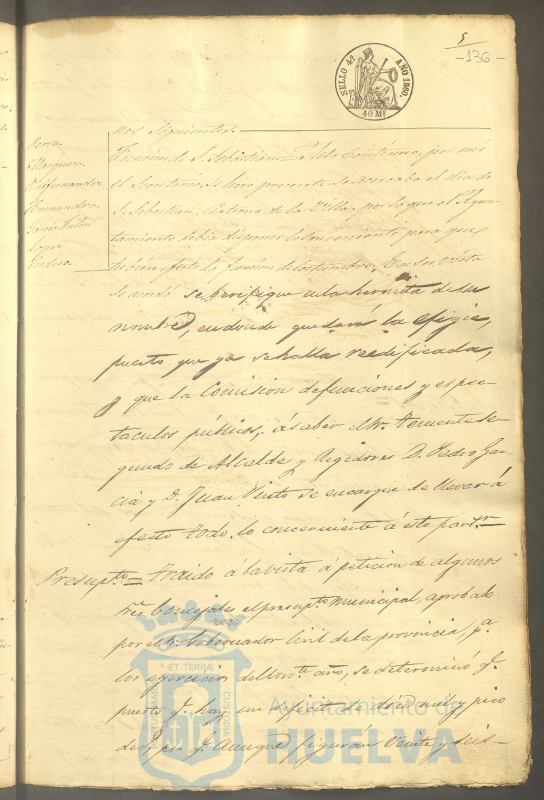 5
-136-
SELLO 4º AÑO 1860.
40 Ms
nos siguientes.
Funcion de S. Sebastian = Acto continuo, por mi
el Secretario, se hizo presente se acercaba el dia de
S. Sebastian, Patrono de la Villa, por lo que el Ayun-
tamiento debia disponer lo conveniente para que
se hiciese la funcion de costumbre. En su vista
se acordó se verifique en la hermita de su
nombre, en donde quedará la efigie,
puesto que ya se halla reedificada,
y que la Comision de funciones y espec-
taculos publicos, á saber el Sr. Teniente se-
gundo de Alcalde y Regidores D. Pedro Gar-
cia y D. Juan Pinto se encargue de llevar á
efecto todo lo concerniente á este partr.
Presupto = Traido á la vista á peticion de algunos
Sres. Concejales el presupto municipal, aprobado
por el Sr. Gobernador Civil de la provincia, pa.
los ejercicios del corte. año, se determinó q.
puesto q. hay un deficit de diez mil y pico
de q. aunque figuran Veinte y seis-
Marquez
Hernandez
Lopez
ET TERRÆ
CUSTODIA
Ayuntamiento de
HUELVA